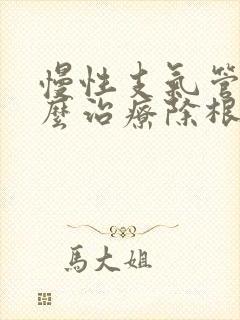 慢性支氣管
麼治療除根
馬大姐